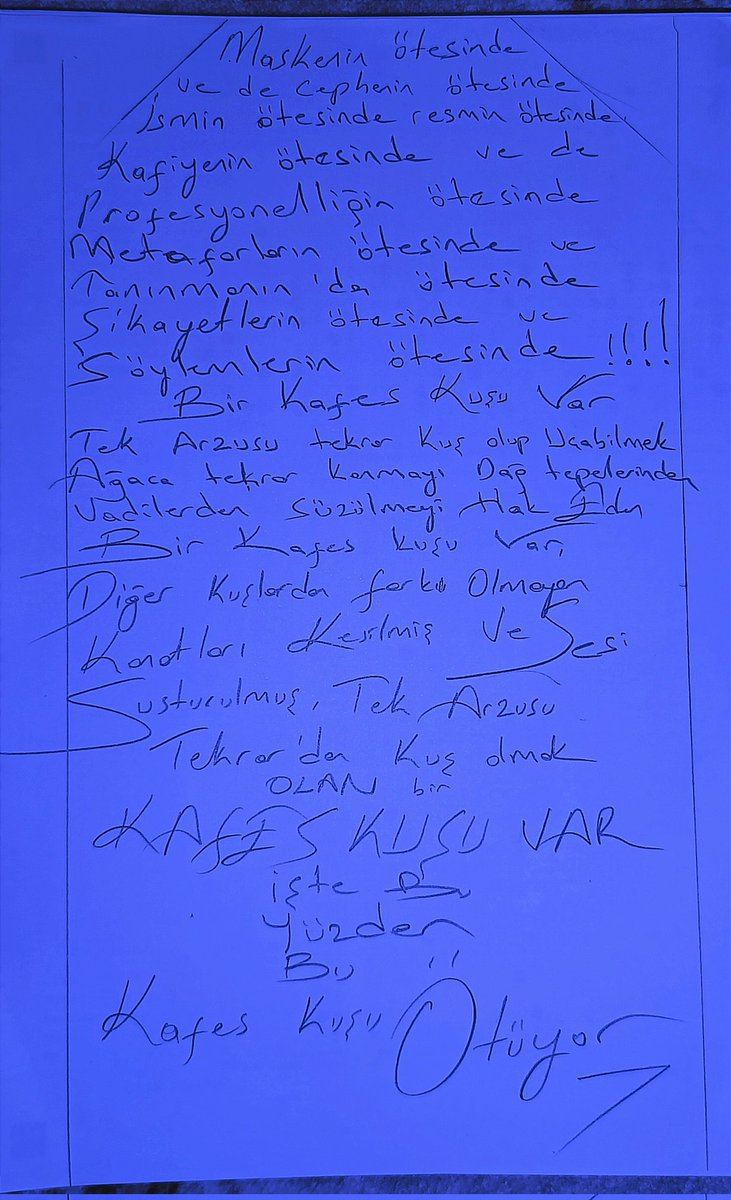 Maskenin ötesinde
ve de cephenin ötesinde
İsmin ötesinde resmin ötesinde
Kafiyenin ötesinde ve de
Profesyonelliğin ötesinde
Metaforların ötesinde ve
Tanınmanın'da ötesinde
Şikayetlerin ötesinde ve
Söylemlerin ötesinde!!!!
Bir Kafes Kuşu Var
Tek Arzusu tekrar Kuş olup Uçabilmek
Ağaca tekrar konmayı Dağ tepelerinden
Vadilerden süzülmeyi Hak Eden
Bir Kafes Kuşu Var,
Diğer Kuşlardan farkı Olmayan
Kanatları Kesilmiş Ve Sesi
Susturulmuş, Tek Arzusu
Tekrar'dan Kuş olmak
OLAN bir
KAFES KUŞU VAR
işte Bu
Yüzden
Bu
Kafes Kuşu Ötüyor